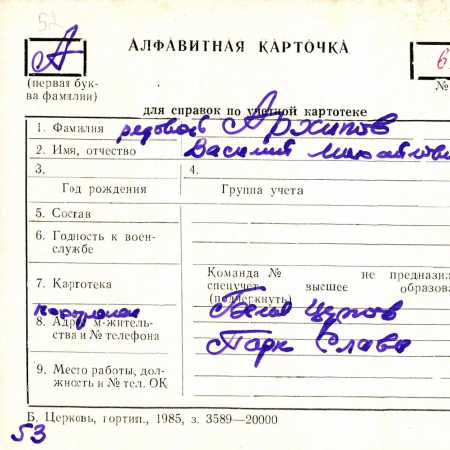 52
А
АЛФАВИТНАЯ КАРТОЧКА
6
(первая бук-
ва фамилии)
№
для справок по учетной картотеке
1. Фамилия рядовой Архипов
2. Имя, отчество Василий Михайлови
3.
4.
Год рождения
Группа учета
5. Состав
6. Годность к воен-
службе
7. Картотека
Команда № не предназн
спецучет высшее образова
(подчеркнуть)
8. Адрес м-житель-
ства и № телефона
Белая Церков
Парк Слави
9. Место работы, дол-
жность и № тел. ОК
Б. Церковь, гортип., 1985, з. 3589—20000
53